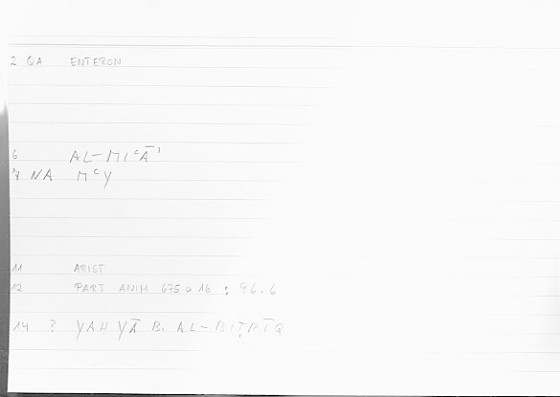 2 GA ENTERON
6 AL-MIʿĀʾ
7 NA MʿY
11 ARIST
12 PART ANIM 675 a 16 : 96.6
14 ? YAHYĀ B. AL-BIṬRĪQ